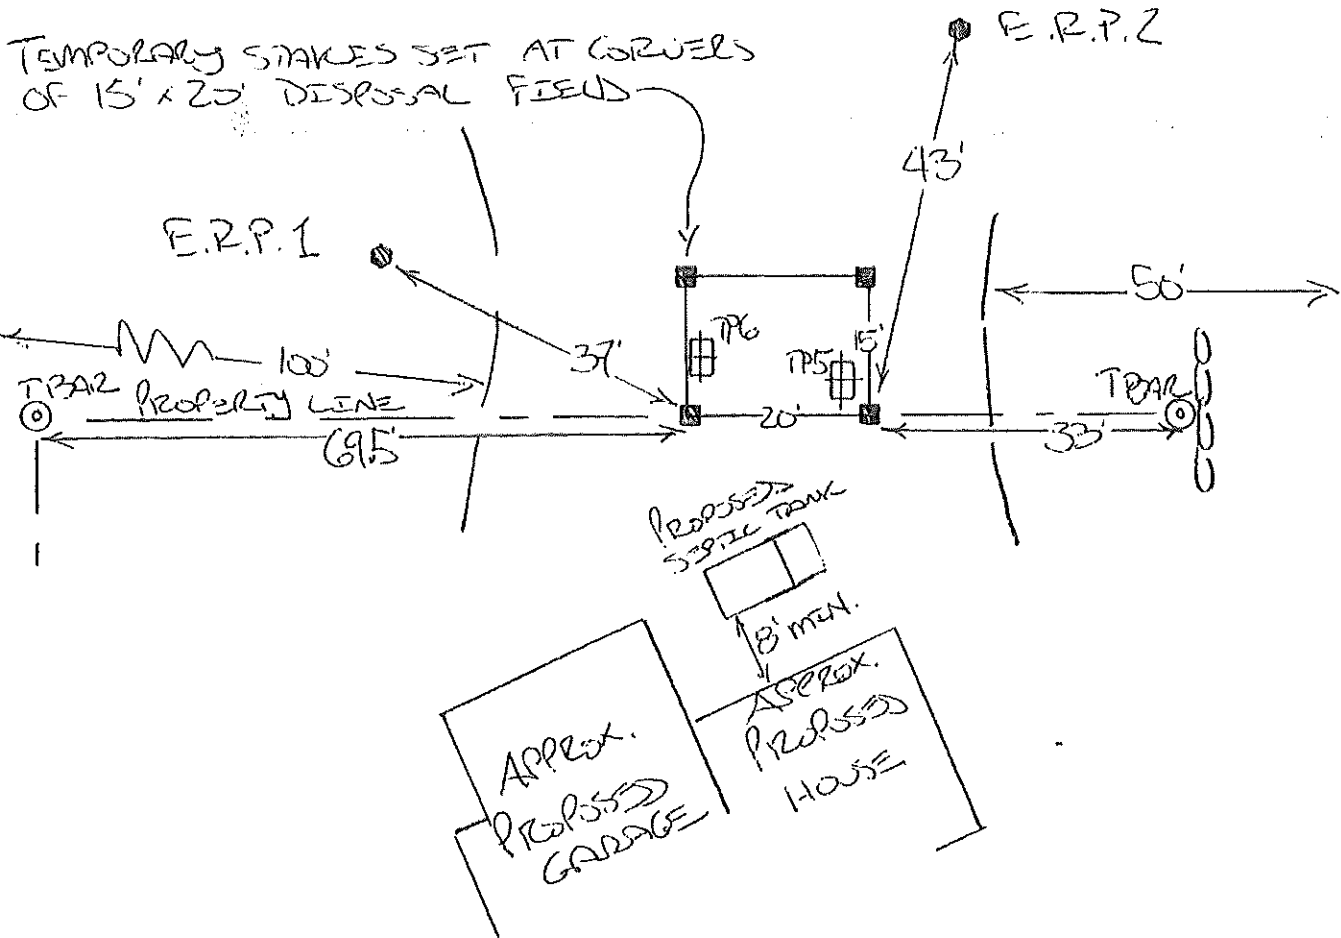 TEMPORARY STAKES SET AT CORNERS
OF 15' x 20' DISPOSAL FIELD
E.R.P. 2
43'
E.R.P. 1
50'
37'
TP6
TP5
15'
100'
TBAR
PROPERTY LINE
20'
TBAR
69.5'
33'
PROPOSED
SEPTIC TANK
8' MIN.
APPROX.
PROPOSED
HOUSE
APPROX.
PROPOSED
GARAGE